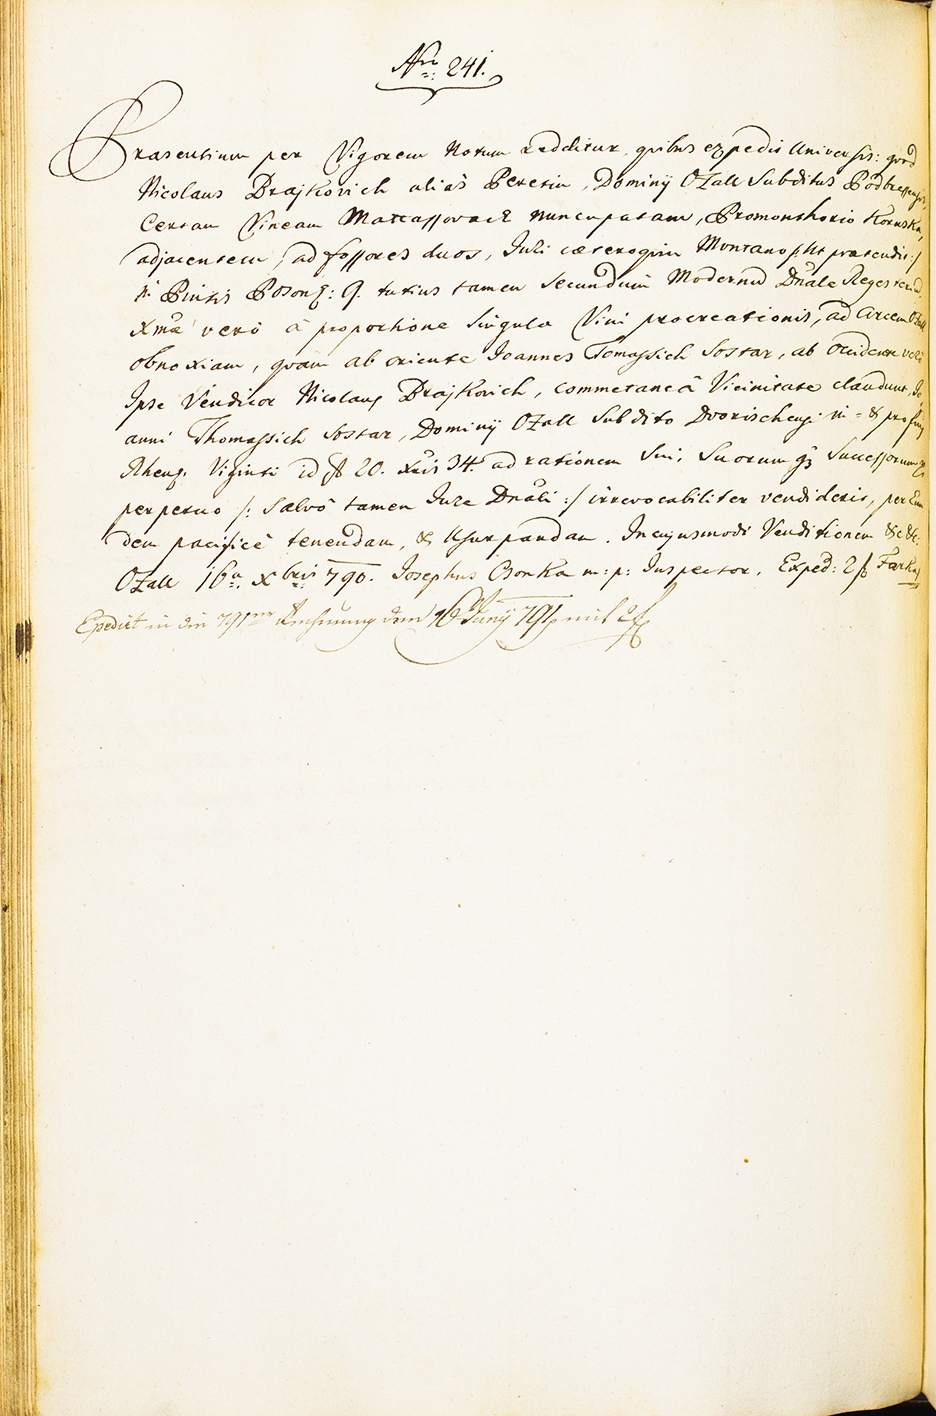 Nro 241.
Præsentium per Vigorem Notum redditur, quibus expedit Universis: quod
Nicolaus Brajkovich aliàs Peretin, Dominÿ Ozall Subditus Podbressensis,
Certam Vineam nuncupatam, Promonthorio Kornska,
adjacentem, ad fossores duos, Juri cæteroquin Montano /: ut prætendit :/
in Pintis Poson: 9. tutius tamen secundùm Modernũ Dnale Regestrum,
Xma verò à proportione singula Vini procreationis, ad Arcem Ozall
obnoxiam, quam ab oriente Joannes Tomassich Sostar, ab Occidente verò
Ipse Venditor Nicolaus Brajkovich, commetaneâ Vicinitate claudunt, Jo-
anni Thomassich Sostar, Dominÿ Ozall Subdito Dvorischensi in = & pro
Rhens. Viginti id f 20. xris 34. ad rationem Sui, Suorumq3 Successorum
perpetuo /: Salvô tamen Jure Dnali :/ irrevocabiliter vendiderit, per Eun
dem pacificè tenendam, & Usurpandam. In cujusmodi Venditionem &c &c.
Ozall 16a Xbris 790. Josephus Bonka m: p: Inspector. Exped: 2 f Farkas
Expedirt in die 791ger Rechnung dem 16 Juny 791 mit 2 f